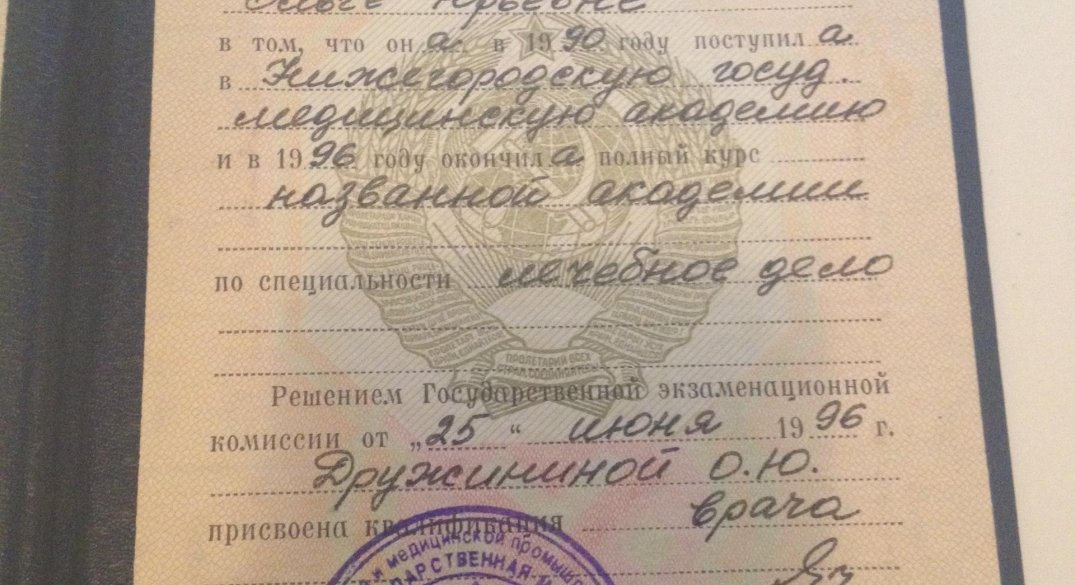 Ольге Юрьевне
в том, что он а в 1990 году поступил а
в Нижегородскую госуд.
медицинскую академию
и в 1996 году окончил а полный курс
названной академии
по специальности лечебное дело
ПРОЛЕТАРИИ ВСЕХ
СТРАН, СОЕДИНЯЙТЕСЬ!
Решением Государственной экзаменационной
комиссии от „25“ июня 1996 г.
Дружининой О.Ю.
присвоена квалификация врача
и медицинской промыш
ДАРСТВЕННАЯ